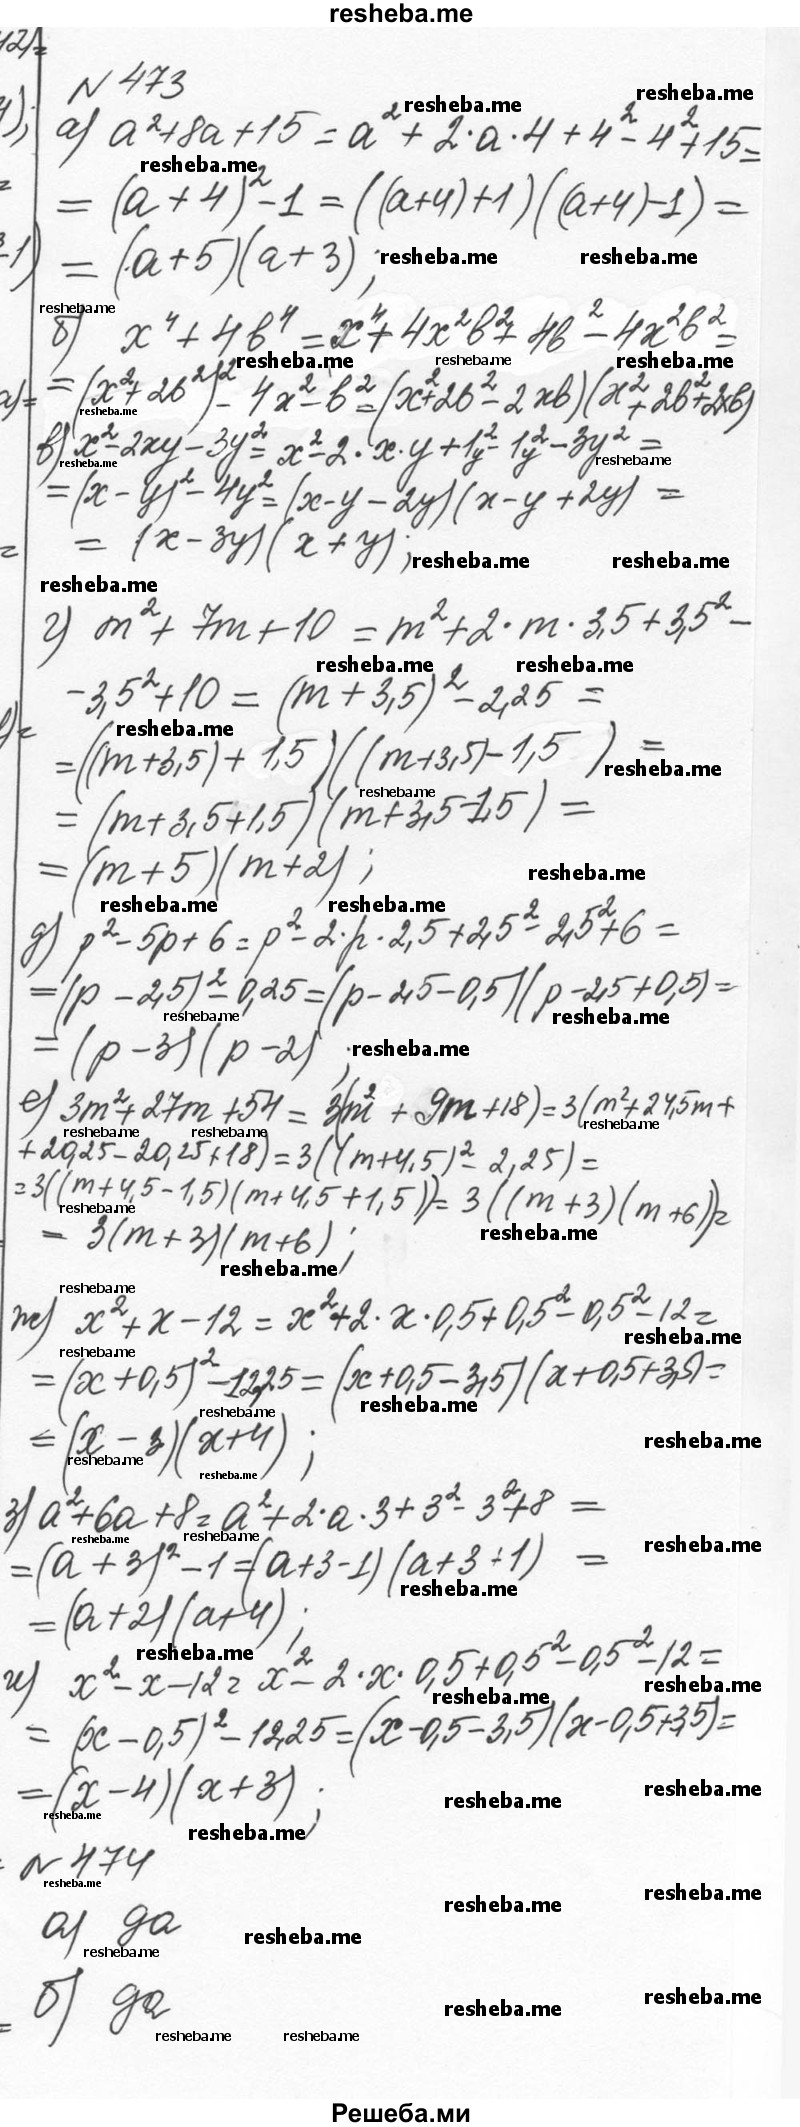 resheba.me
12)=
N 473
а) a²+8a+15 = a² + 2·a·4 + 4² - 4² + 15 =
= (a + 4)² - 1 = ((a+4)+1)((a+4)-1) =
= (a+5)(a+3);
б) x⁴ + 4b⁴ = x⁴ + 4x²b² + 4b² - 4x²b² =
= (x²+2b²)² - 4x² - b² = (x²+2b²-2xb)(x²+2b²+2xb)
в) x²-2xy-3y² = x²-2·x·y+1y²-1y²-3y² =
= (x-y)²-4y² = (x-y-2y)(x-y+2y) =
= (x-3y)(x+y);
г) m² + 7m + 10 = m² + 2·m·3,5 + 3,5² -
- 3,5² + 10 = (m + 3,5)² - 2,25 =
= ((m+3,5) + 1,5)((m+3,5) - 1,5) =
= (m+3,5+1,5)(m+3,5-1,5) =
= (m+5)(m+2);
д) p² - 5p + 6 = p² - 2·p·2,5 + 2,5² - 2,5² + 6 =
= (p - 2,5)² - 0,25 = (p-2,5-0,5)(p-2,5+0,5) =
= (p-3)(p-2);
е) 3m² + 27m + 54 = 3(m² + 9m + 18) = 3(m²+2·4,5m+
+20,25-20,25+18) = 3((m+4,5)² - 2,25) =
= 3((m+4,5-1,5)(m+4,5+1,5)) = 3((m+3)(m+6)) =
= 3(m+3)(m+6);
ж) x² + x - 12 = x² + 2·x·0,5 + 0,5² - 0,5² - 12 =
= (x+0,5)² - 12,25 = (x+0,5-3,5)(x+0,5+3,5) =
= (x-3)(x+4);
з) a²+6a+8 = a²+2·a·3+3²-3²+8 =
= (a+3)²-1 = (a+3-1)(a+3+1) =
= (a+2)(a+4);
и) x²-x-12 = x²-2·x·0,5+0,5²-0,5²-12 =
= (x-0,5)²-12,25 = (x-0,5-3,5)(x-0,5+3,5) =
= (x-4)(x+3);
N 474
а) да
б) да
Решеба.ми